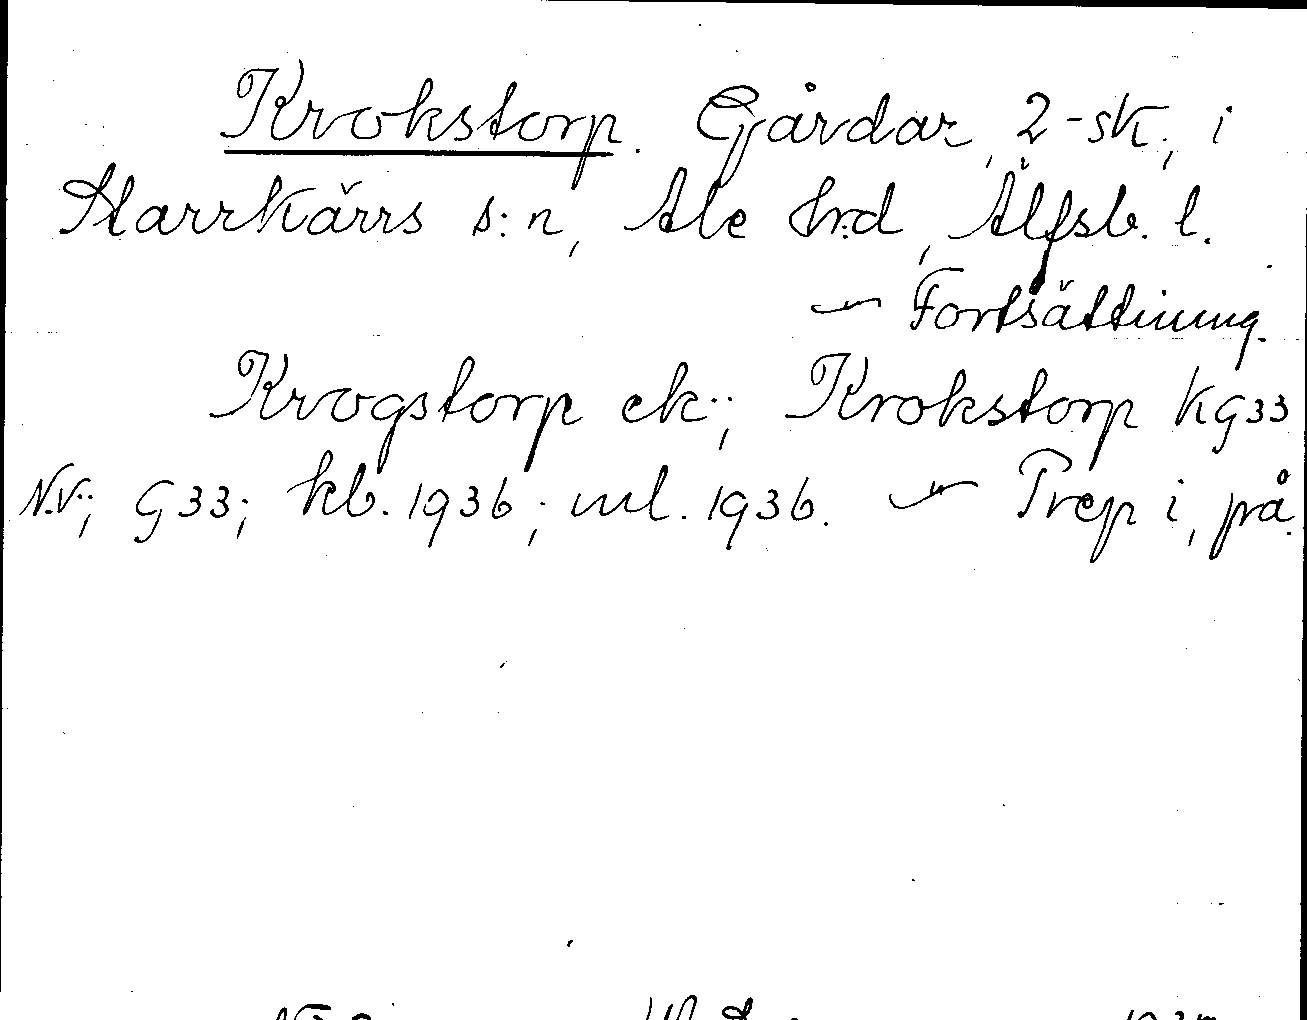 Krokstorp. Gårdar, 2-sk., i
Starrkärrs s:n, Ale hrd, Älfsb. l.
~ Fortsättning.
Krogstorp ek.; Krokstorp KG33
N.V.; G33; kb. 1936; ml. 1936. ~ Prep i, på.